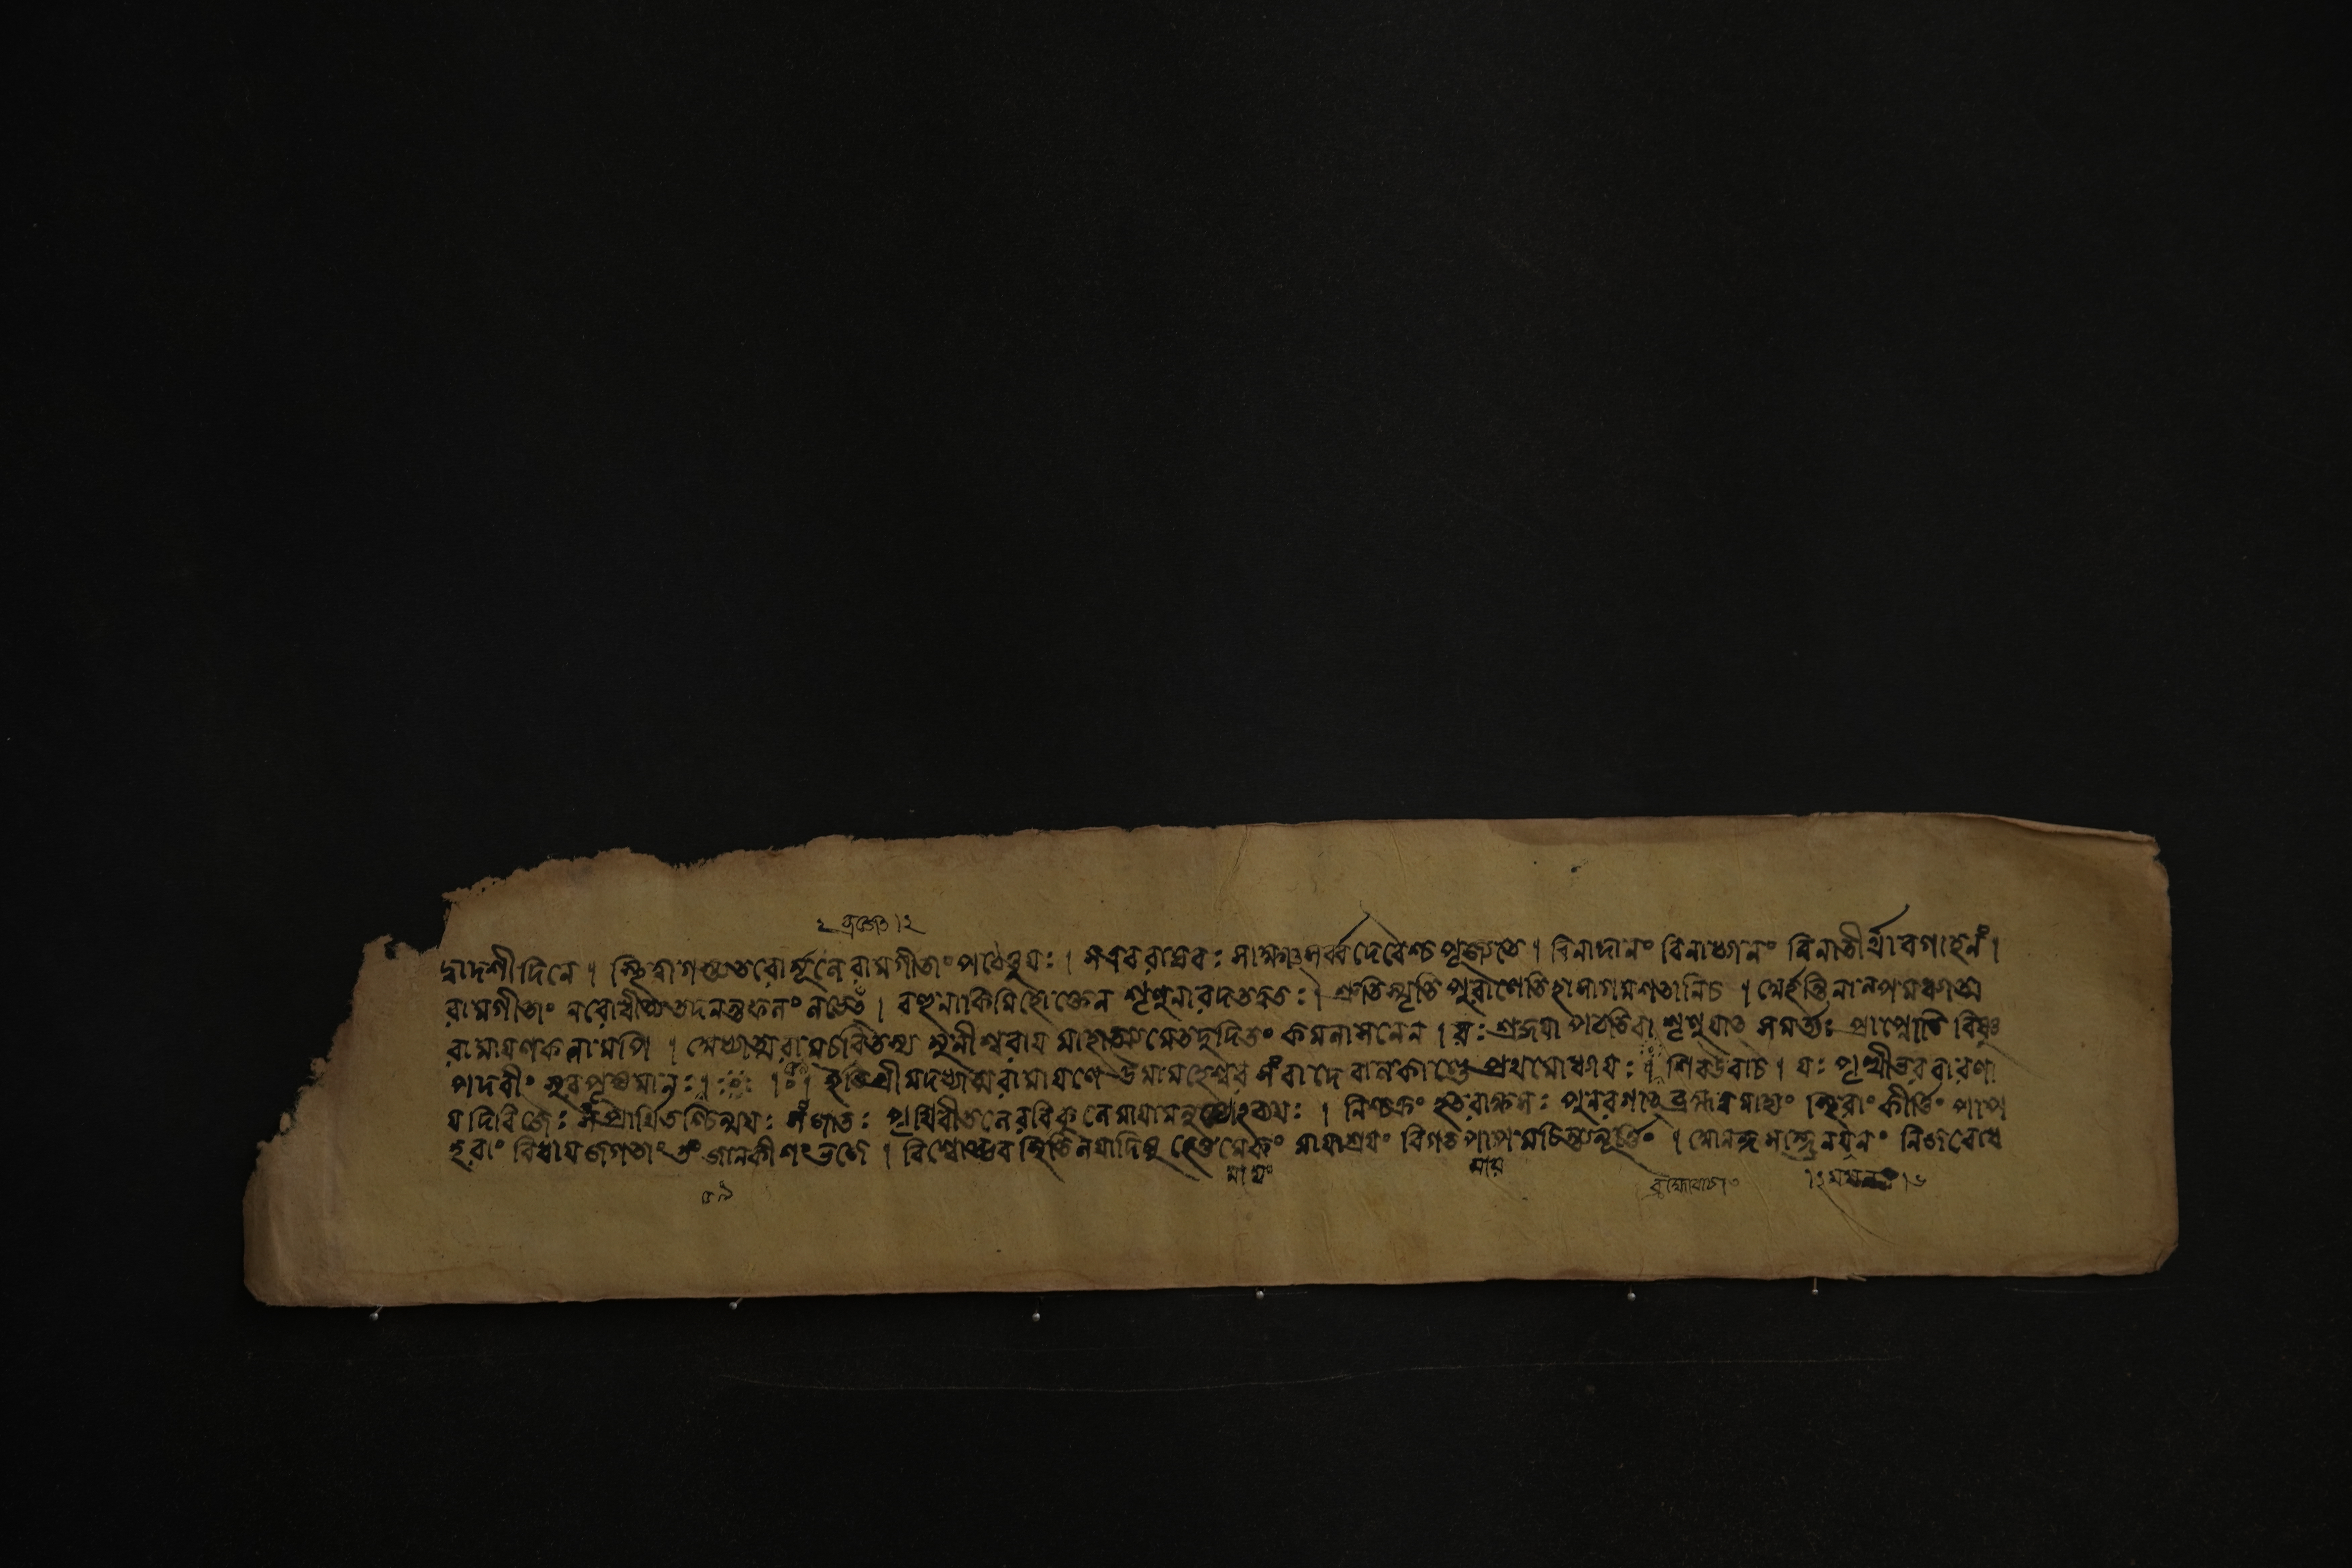 ২ ব্রজেত।২
দ্বাদশীদিনে। স্থিত্বাগস্ত্যতরোর্মূলে রামগীতাং পঠেত্তুযঃ। সএবরাঘবঃ সাক্ষাৎসর্ব্বদেবৈশ্চপূজ্যতে। বিনাদানং বিনাধ্যানং বিনাতীর্থাবগাহনং।
রামগীতাং নরোধীত্যতদনন্তফলং লভেৎ। বহুনাকিমিহোক্তেন শৃণুনারদতত্ত্বতঃ। শ্রুতিস্মৃতি পুরাণেতিহাসাগমশতানিচ। নার্হন্তিনাল্পমধ্যাত্ম
রামায়ণকলামপি। অধ্যাত্মরামচরিতস্য মুনীশ্বরায় মাহাত্ম্যমেতদুদিতং কমলাসনেন। যঃ শ্রদ্ধয়াপঠতিবা শৃণুয়াত সমর্ত্ত্যঃ প্রাপ্নোতি বিষ্ণু
পদবীং সুরপূজ্যমানঃ। । ইতিশ্রীমদধ্যাত্মরামায়ণে উমামহেশ্বর সংবাদে বালকাণ্ডে প্রথমোধ্যায়ঃ। শিবউবাচ। যঃ পৃথ্বীভরবারণা
যদিবিজৈঃ সংপ্রার্থিতশ্চিন্ময়ঃ সংজাতঃ পৃথিবীতলেরবিকুলে মায়ামনুষ্যোঽব্যয়ঃ। নিশ্চক্রং হতরাক্ষসঃ পুনরগাৎব্রহ্মত্বমাদ্যং স্থিরাং কীর্ত্তিং পাপ
হরাং বিধায়জগতাং তং জানকীশংভজে। বিশ্বোদ্ভবস্থিতিলয়াদিষু হেতুমেকং মায়াশ্রয়ং বিগত মচিন্ত্যমূর্ত্তিং। নিজবোধ
মায়ং মায়